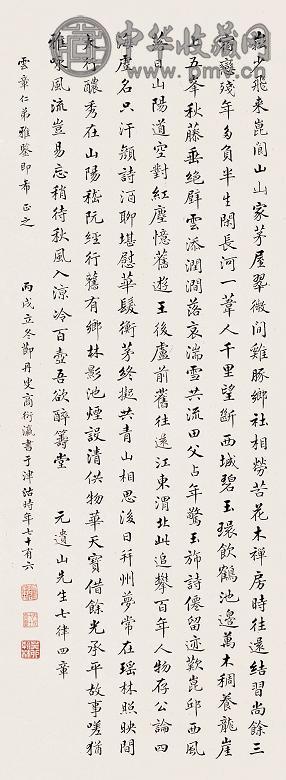 嵐少飛來崑閬山山家茅屋翠微間雞豚鄉社相勞苦花木禪房時往還結習尚餘三
宿戀殘年多負半生閑長河一葦人千里望斷西城碧玉環飲鶴池邊萬木稠養龍崖
上五峯秋藤垂絕壁雲添潤澗落哀湍雪共流田父占年驚玉旆詩僊留迹歎崑邱西風
落日山陽道空對紅塵憶舊遊王後盧前舊往還江東渭北此追攀百年人物存公論四
海虛名只汗顏詩酒聊堪慰華髮衡茅終擬共青山相思後日并州夢常在瑤林照映間
太行醲秀在山陽嵇阮經行舊有鄉林影池煙設清供物華天寶借餘光承平故事嗟猶
在雅詠風流豈易忘稍待秋風入涼冷百壺吾欲醉籌堂 元遺山先生七律四章
雲章仁弟雅鑒即希正之
丙戌立冬節丹叟商衍瀛書于津沽時年七十有六
中华收藏网
www.pmsc.com